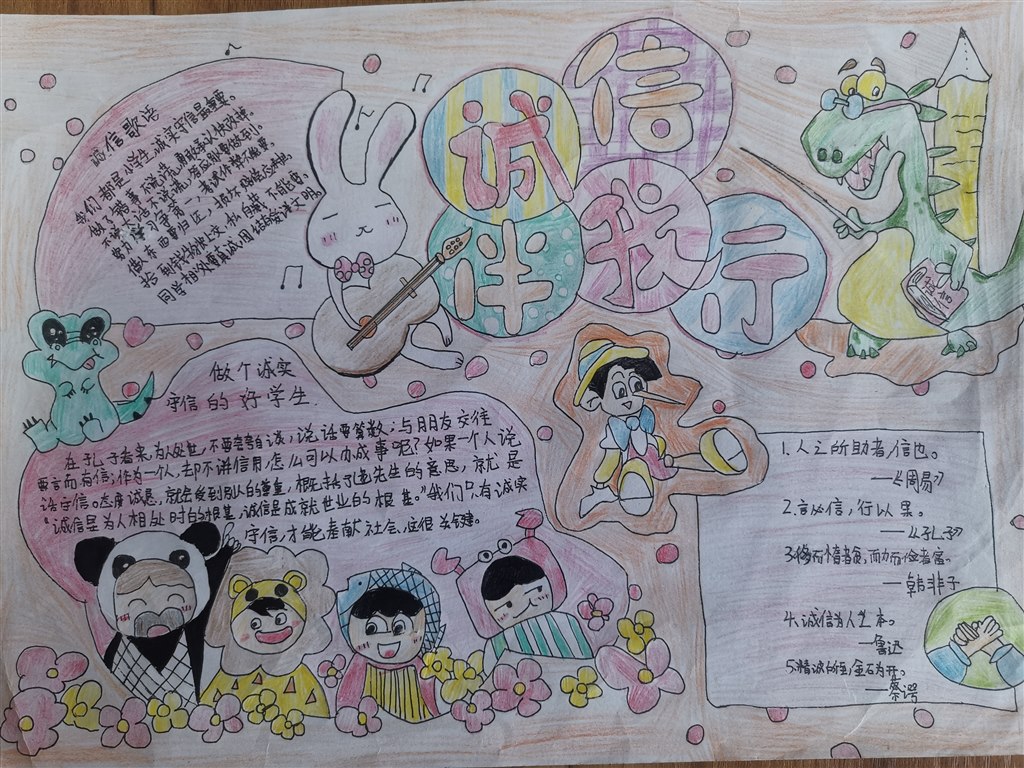 诚信伴我行
诚信歌谣
我们都是小学生,诚实守信最重要。
做了错事不说谎,勇敢承认快改掉。
不讲空话不讲谎,有应别事做到。
努力学习争第一,考试作弊不能要。
同学相处要真诚,团结友善讲文明。
做个诚实
守信的好学生
在孔子看来,为人处世,不要夸夸自谈,说话要算数;与朋友交往
要言而有信;作为一个人,却不讲信用,怎么可以办成事呢?如果一个人说
话守信。态度诚恳,就会受到别人的尊重,
先生的意思,就是
"诚信是为人相处时的根基,诚信是成就世业的根基。"我们只有诚实
守信,才能奉献社会,这很关键。
诚信
1.人之所助者,信也。
——《周易》
2.言必信,行以果。
——《孔子》
3.侈而惰者贫,而力而俭者富。
——韩非子
4.诚信为人之本。
——鲁迅
5.精诚所至,金石为开。
——蔡锷